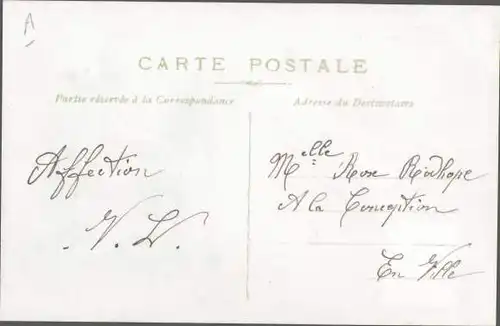 A
CARTE POSTALE
Partie réservée à la Correspondance
Adresse du Destinataire
Affection
V. W.
Melle Rose
A la Conception
En Ville